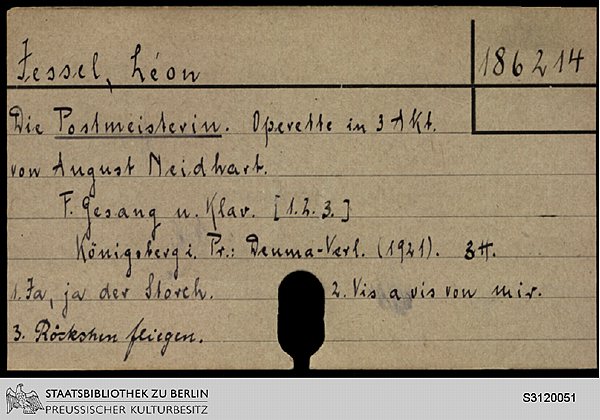 Jessel, Léon
186214
Die Postmeisterin. Operette in 3 Akt.
von August Neidhart.
F. Gesang u. Klav. [1.2.3.]
Königsberg i. Pr.: Deuma-Verl. (1921). 3 H.
1. Ja, ja der Storch. 2. Vis a vis von mir.
3. Röckchen fliegen.
STAATSBIBLIOTHEK ZU BERLIN
PREUSSISCHER KULTURBESITZ
S3120051